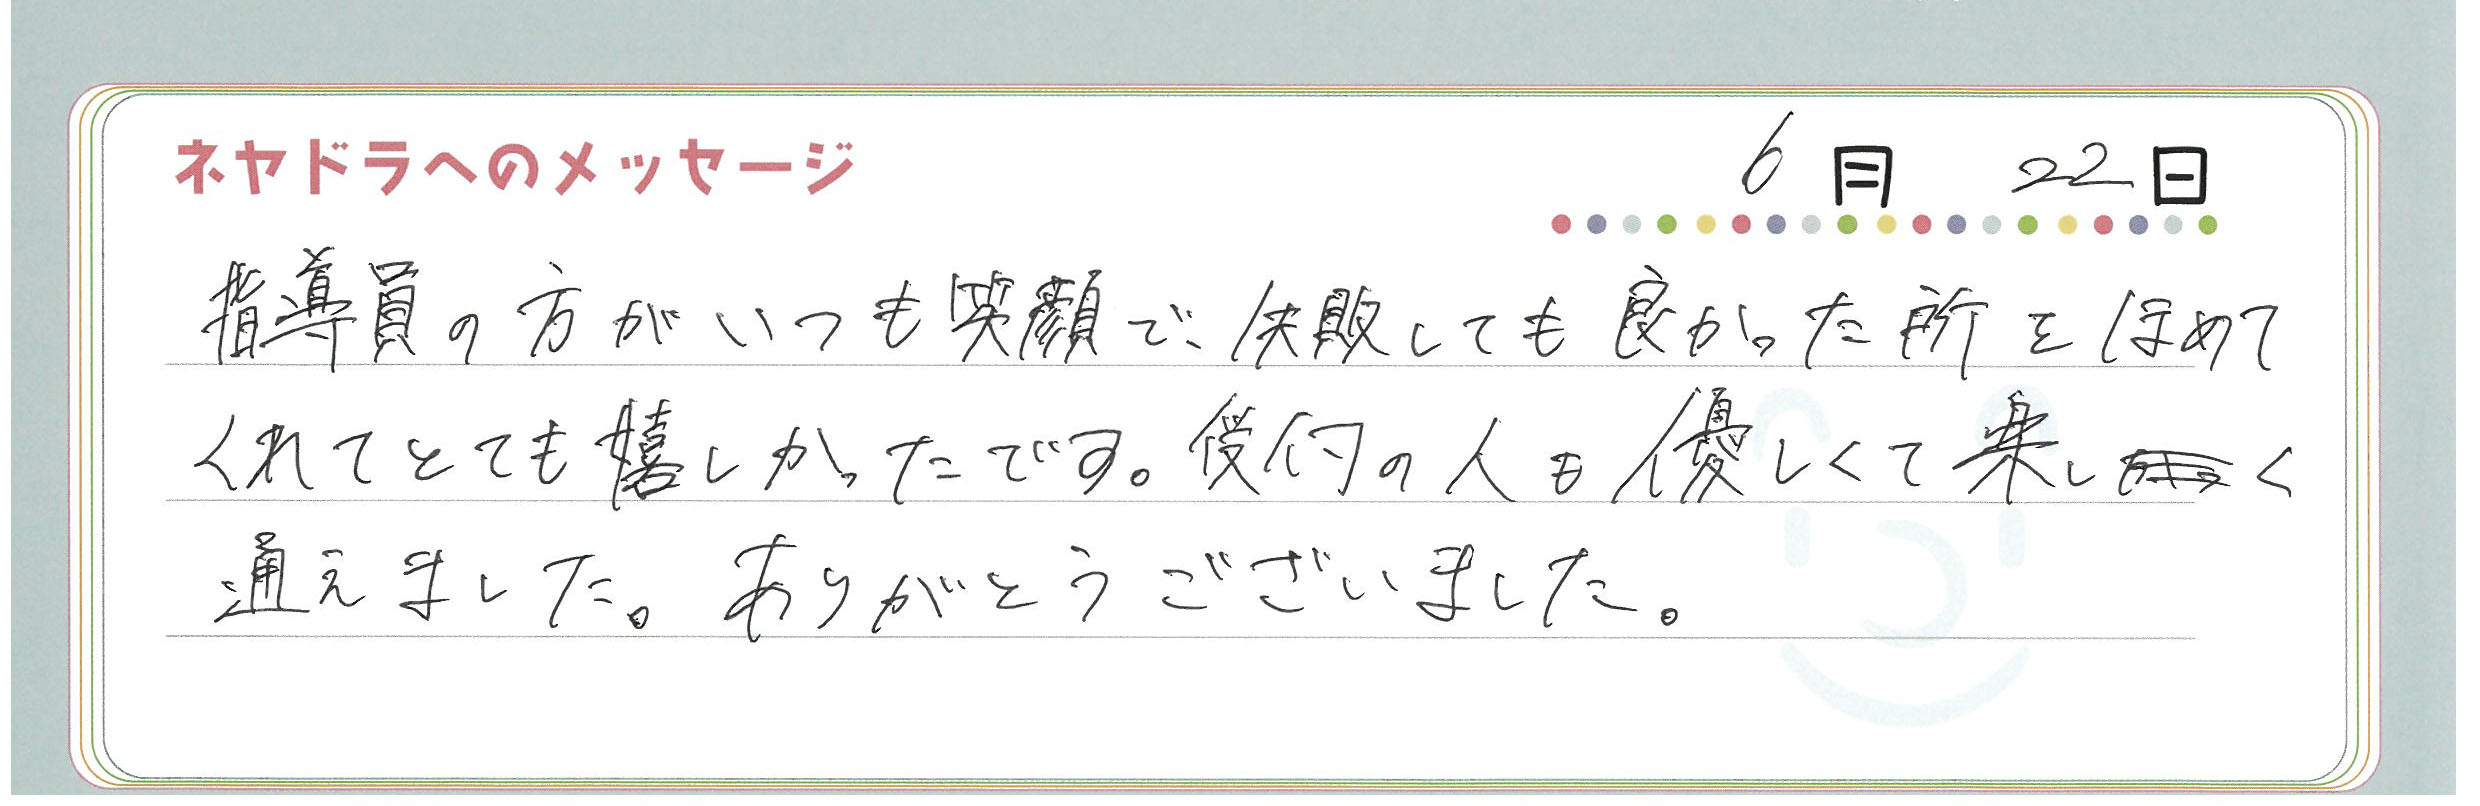 ネヤドラへのメッセージ
6月 22日
指導員の方がいつも笑顔で、失敗しても良かった所をほめて
くれてとても嬉しかったです。受付の人も優しくて楽しく
通えました。ありがとうございました。